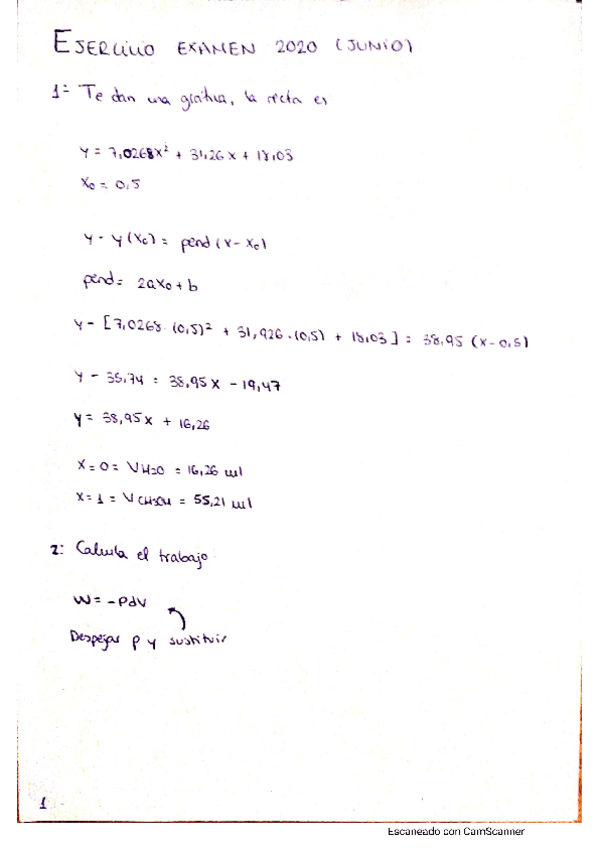 EJERCICIO EXAMEN 2020 (JUNIO)
1: Te dan una gráfica, la recta es
y = 7,0268x² + 31,26x + 18,03
x₀ = 0,5
y - y(x₀) = pend(x - x₀)
pend = 2ax₀ + b
y - [7,0268 · (0,5)² + 31,926 · (0,5) + 18,03] = 38,95 (x - 0,5)
y - 35,74 = 38,95x - 19,47
y = 38,95x + 16,26
x = 0 = V H2O = 16,26 ml
x = 1 = V CH3OH = 55,21 ml
2: Calcula el trabajo
W = -PdV
Despejar p y sustituir
1
Escaneado con CamScanner